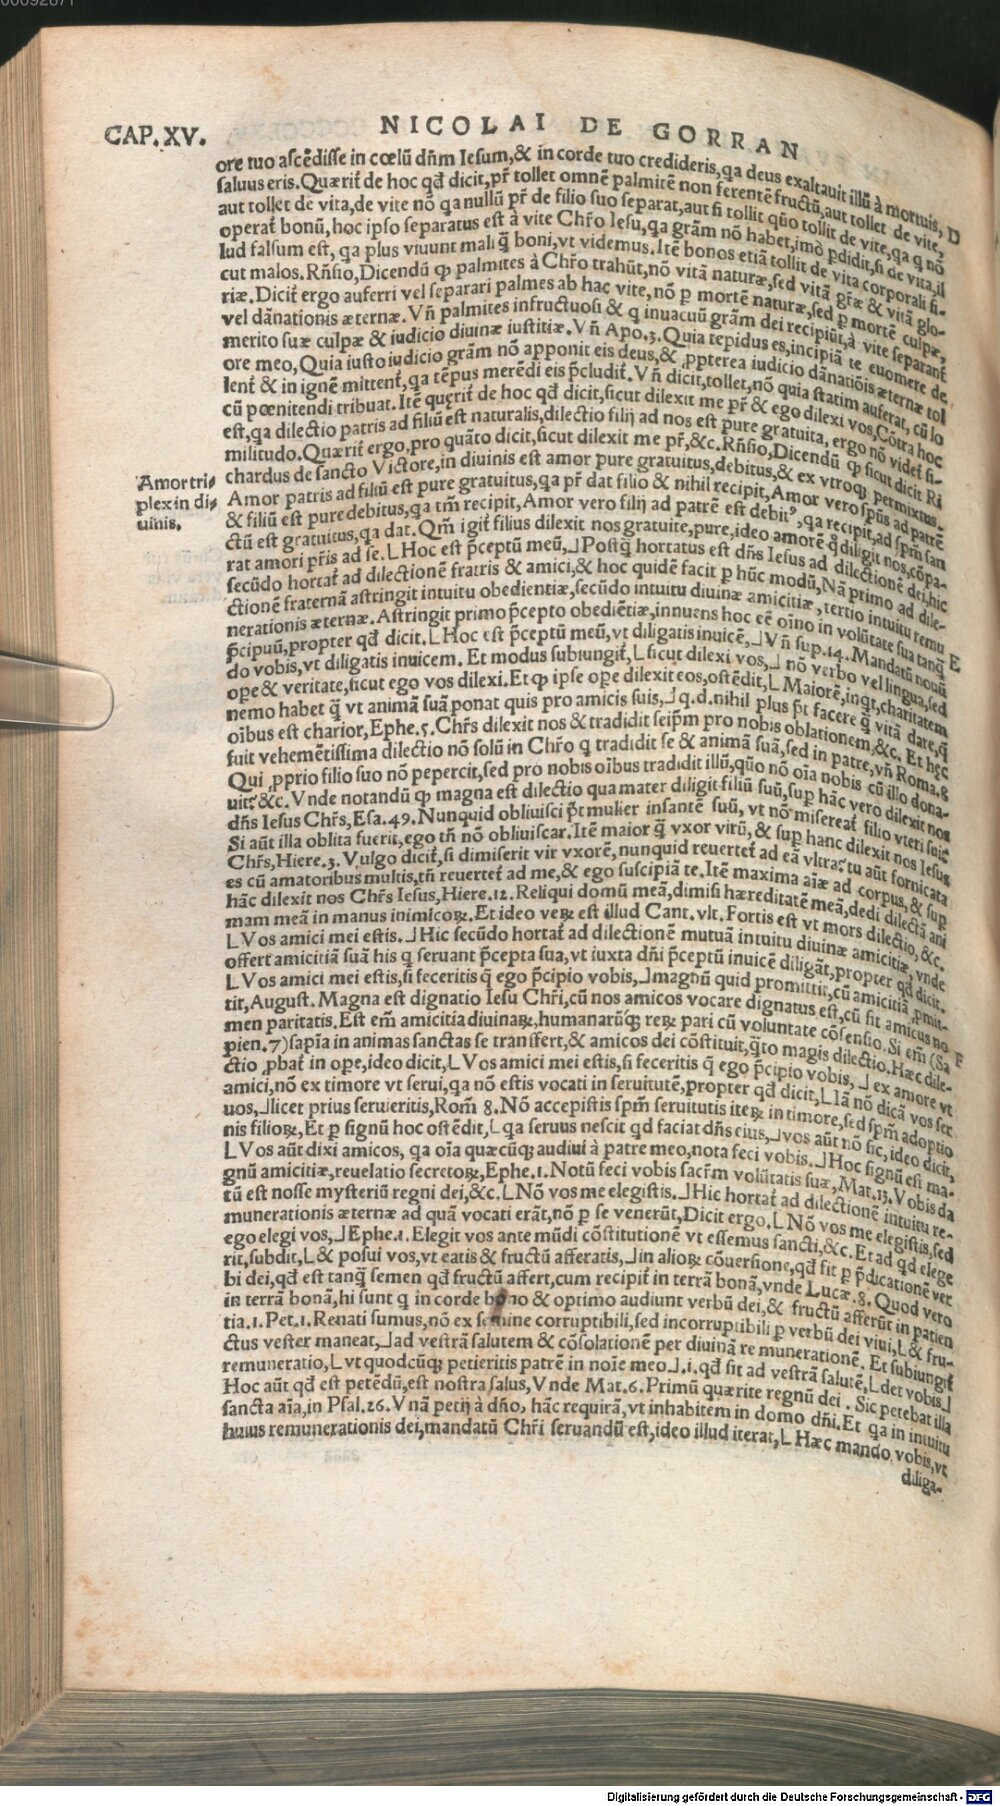 00092871
CAP. XV. NICOLAI DE GORRAN
ore tuo ascēdisse in cœlū dn̄m Iesum, & in corde tuo credideris, qa deus exaltauit illū à mortuis, D
saluus eris. Quærit̃ de hoc qđ dicit, pr̃ tollet omnē palmitē non ferentē fructū, aut tollet de vite,
aut tollet de vita, de vite nō qa nullū pr̃ de filio suo separat, aut si tollit quo tollit de vite, qa q nō
operat̃ bonū, hoc ipso separatus est à vite Chr̃o Iesu, qa grãm nō habet, imò pdidit, si de vita, il
lud falsum est, qa plus viuunt mali q̃ boni, vt videmus. Itē bonos etiā tollit de vita corporali si-
cut malos. Rñsio, Dicendū ꝙ palmites à Chr̃o trahūt, nō vitā naturæ, sed vitā gr̃æ & vitā glo-
riæ. Dicit̃ ergo auferri vel separari palmes ab hac vite, nō p mortē naturæ, sed p mortē culpæ,
vel dānationis æternæ. Vñ palmites infructuosi & q inuacuū grãm dei recipiūt, à vite separant̃
merito suæ culpæ & iudicio diuinæ iustitiæ. Vñ Apo. 3. Quia tepidus es, incipiā te euomere de
ore meo, Quia iusto iudicio grãm nō apponit eis deus, & ppterea iudicio dānatiōis æternæ tol
lent̃ & in ignē mittent̃, qa tēpus merēdi eis p̃cludit̃. Vñ dicit, tollet, nō quia statim auferat, cū lo
cū pœnitendi tribuat. Itē quęrit̃ de hoc qđ dicit, sicut dilexit me pr̃ & ego dilexi vos, Cōtra hoc
est, qa dilectio patris ad filiū est naturalis, dilectio filij ad nos est pure gratuita, ergo nō videt̃ si-
militudo. Quærit̃ ergo, pro quāto dicit, sicut dilexit me pr̃, &c. Rñsio, Dicendū ꝙ sicut dicit Ri
chardus de sancto Victore, in diuinis est amor pure gratuitus, debitus, & ex vtroqꝫ permixtus.
Amor tri-
plex in di-
uinis.
Amor patris ad filiū est pure gratuitus, qa pr̃ dat filio & nihil recipit, Amor vero spũs ad patrē
& filiū est pure debitus, qa tm̃ recipit, Amor vero filij ad patrē est debitꝰ, qa recipit, ad spm̃ san
ctū est gratuitus, qa dat. Qm̃ igit̃ filius dilexit nos gratuite, pure, ideo amorē q̃ diligit nos, cōpa-
rat amori pr̃is ad se. ⌊Hoc est p̃ceptū meū,⌋ Postq̃ hortatus est dñs Iesus ad dilectionē dei, hic
secūdo hortat̃ ad dilectionē fratris & amici, & hoc quidē facit p hūc modū, Nā primo ad dile-
ctionē fraternā astringit intuitu obedientiæ, secūdo intuitu diuinæ amicitiæ, tertio intuitu remu
nerationis æternæ. Astringit primo p̃cepto obediētiæ, innuens hoc eē oīno in volūtate sua tanq̃ E
p̃cipuū, propter qđ dicit. ⌊Hoc est p̃ceptū meū, vt diligatis inuicē,⌋ Vñ sup. 14. Mandatū nouū
do vobis, vt diligatis inuicem. Et modus subiungit̃, ⌊sicut dilexi vos,⌋ nō verbo vel lingua, sed
ope & veritate, sicut ego vos dilexi. Et ꝙ ipse ope dilexit eos, ostēdit, ⌊Maiorē, inqt, charitatem
nemo habet q̃ vt animā suā ponat quis pro amicis suis,⌋ q.d. nihil plus p̃t facere q̃ vitā dare, q̃
oībus est charior, Ephe. 5. Chr̃s dilexit nos & tradidit seip̃m pro nobis oblationem, &c. Et hęc
fuit vehemētissima dilectio nō solū in Chr̃o q tradidit se & animā suā, sed in patre, vñ Roma. 8
Qui pprio filio suo nō pepercit, sed pro nobis oībus tradidit illū, quō nō oīa nobis cū illo dona-
uit? &c. Vnde notandū ꝙ magna est dilectio qua mater diligit filiū suū, sup hāc vero dilexit nos
dñs Iesus Chr̃s, Esa. 49. Nunquid obliuisci p̃t mulier infantē suū, vt nō misereat̃ filio vteri sui?
Si aūt illa oblita fuerit, ego tñ nō obliuiscar. Itē maior q̃ vxor virū, & sup hanc dilexit nos Iesus
Chr̃s, Hiere. 3. Vulgo dicit̃, si dimiserit vir vxorē, nunquid reuertet̃ ad eā vltra? tu aūt fornicata
es cū amatoribus multis, tñ reuertet̃ ad me, & ego suscipiā te. Itē maxima aīæ ad corpus, & sup
hāc dilexit nos Chr̃s Iesus, Hiere. 12. Reliqui domū meā, dimisi hæreditatē meā, dedi dilectā ani
mam meā in manus inimicoꝝ. Et ideo veꝝ est illud Cant. vlt. Fortis est vt mors dilectio, &c.
⌊Vos amici mei estis.⌋ Hic secūdo hortat̃ ad dilectionē mutuā intuitu diuinæ amicitiæ, vnde
offert amicitiā suā his q seruant p̃cepta sua, vt iuxta dñi p̃ceptū inuicē diligāt, propter qđ dicit.
⌊Vos amici mei estis, si feceritis q̃ ego p̃cipio vobis,⌋ magnū quid promittit, cū amicitiā pmit-
tit, August. Magna est dignatio Iesu Chr̃i, cū nos amicos vocare dignatus est, cū sit amicus no
men paritatis. Est em̃ amicitia diuinaꝝ, humanarūqꝫ reꝝ pari cū voluntate cōsensio. Si em̃ (Sa F
pien. 7) sapīa in animas sanctas se transfert, & amicos dei cōstituit, q̃to magis dilectio. Hæc dile-
ctio pbat̃ in ope, ideo dicit, ⌊Vos amici mei estis, si feceritis q̃ ego p̃cipio vobis,⌋ ex amore vt
amici, nō ex timore vt serui, qa nō estis vocati in seruitutē, propter qđ dicit, ⌊Iā nō dicā vos ser
uos,⌋ licet prius serui eritis, Rom̃ 8. Nō accepistis spm̃ seruitutis iteꝝ in timore, sed spm̃ adoptio
nis filioꝝ, Et p signū hoc ostēdit, ⌊qa seruus nescit qd faciat dñs eius,⌋ vos aūt nō sic, ideo dicit,
⌊Vos aūt dixi amicos, qa oīa quæcūqꝫ audiui à patre meo, nota feci vobis.⌋ Hoc signū est ma-
gnū amicitiæ, reuelatio secretoꝝ, Ephe. 1. Notū feci vobis sacr̃m volūtatis suæ, Mat. 13. Vobis da
tū est nosse mysteriū regni dei, &c. ⌊Nō vos me elegistis.⌋ Hic hortat̃ ad dilectionē intuitu re-
munerationis æternæ ad quā vocati erāt, nō p se venerūt, Dicit ergo. ⌊Nō vos me elegistis, sed
ego elegi vos,⌋ Ephe. 1. Elegit vos ante mūdi cōstitutionē vt essemus sancti, &c. Et ad qđ elege
rit, subdit, ⌊& posui vos, vt eatis & fructū afferatis,⌋ in alioꝝ cōuersione, qđ fit p p̃dicationē ver
bi dei, qđ est tanq̃ semen qđ fructū affert, cum recipit̃ in terrā bonā, vnde Lucæ. 8. Quod vero
in terrā bonā, hi sunt q in corde bono & optimo audiunt verbū dei, & fructū afferūt in patien
tia. 1. Pet. 1. Renati sumus, nō ex semine corruptibili, sed incorruptibili p verbū dei viui, ⌊& fru-
ctus vester maneat,⌋ ad vestrā salutem & cōsolationē per diuinā remunerationē. Et subiungit̃
remuneratio, ⌊vt quodcūqꝫ petieritis patrē in noīe meo⌋ .i. qđ sit ad vestrā salutē, ⌊det vobis⌋
Hoc aūt qđ est petēdū, est nostra salus, Vnde Mat. 6. Primū quærite regnū dei. Sic petebat illa
sancta aīa, in Psal. 26. Vnā petij à dño, hāc requirā, vt inhabitem in domo dñi. Et qa in intuitu
huius remunerationis dei, mandatū Chr̃i seruandū est, ideo illud iterat, ⌊Hæc mando vobis, vt
diliga-
Digitalisierung gefördert durch die Deutsche Forschungsgemeinschaft - DFG